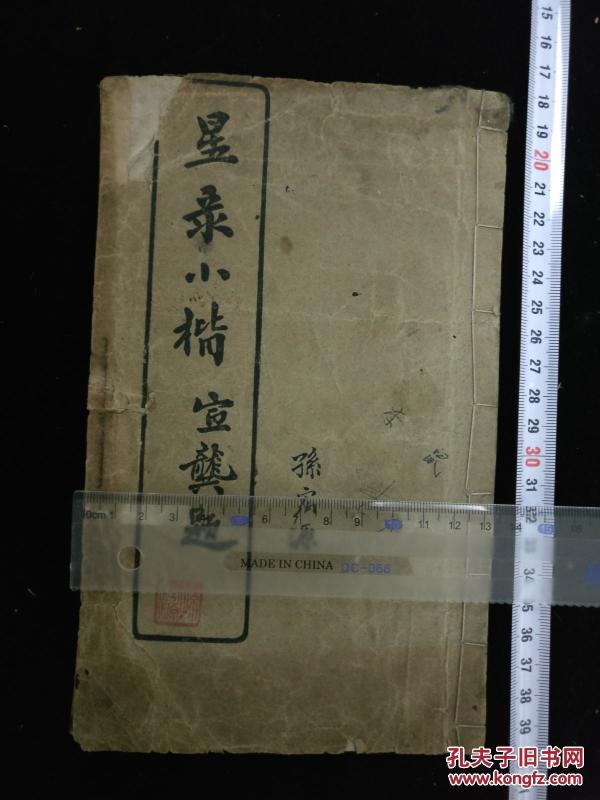 星彔小楷 宣龔題
孫
0cm 1 2 3 6 7 8 9 11 12 13 14 15
MADE IN CHINA DC-056
15
16
17
18
19
20
21
22
23
24
25
26
27
28
29
30
31
32
33
34
35
36
37
38
39
孔夫子旧书网
www.kongfz.com